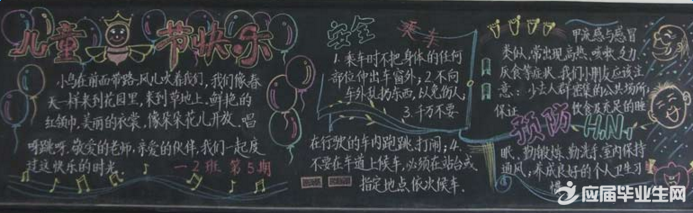 儿童节快乐
小鸟在前面带路,风儿吹着我们,我们像春
天一样来到花园里,来到草地上。鲜艳的
红领巾,美丽的衣裳,像朵朵花儿开放。唱
呀跳呀,敬爱的老师,亲爱的伙伴,我们一起度
过这快乐的时光。
一2班 第5期
安全乘车
1.乘车时不把身体的任何
部位伸出车窗外;2.不向
车外乱扔东西,以免伤人;
3.千万不要
在行驶的车内跑跳、打闹;4.
不要在车道上候车,必须在站台或
指定地点依次候车。
甲流感与感冒
类似,常出现高热、咳嗽、乏力、
厌食等症状。我们小朋友应该注
意:少去人群密集的公共场所,
保证饮食及充足的睡
预防H1N1
眠、勤锻炼、勤洗手、室内保持
通风,养成良好的个人卫生习
惯
应届毕业生网